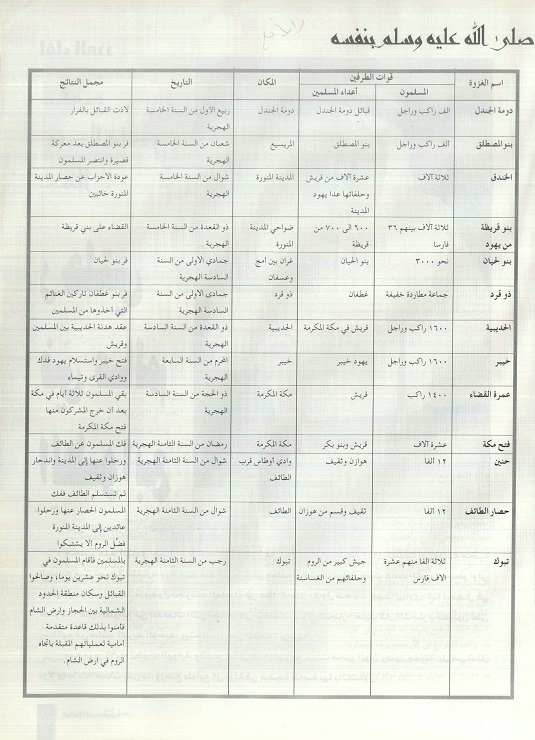 صلى الله عليه وسلم بنفسه
اسم الغزوة قوات الطرفين المكان التاريخ مجمل النتائج
المسلمون أعداء المسلمين
دومة الجندل الف راكب وراجل قبائل دومة الجندل دومة الجندل ربيع الاول من السنة الخامسة لاذت القبائل بالفرار
الهجرية
بنو المصطلق ألف راكب وراجل بنو المصطلق المريسيع شعبان من السنة الخامسة فر بنو المصطلق بعد معركة
الهجرية قصيرة وانتصر المسلمون
الخندق ثلاثة آلاف عشرة آلاف من قريش المدينة المنورة شوال من السنة الخامسة عودة الاحزاب عن حصار المدينة
وحلفائها عدا يهود الهجرية المنورة خائبين
المدينة
بنو قريظة ثلاثة آلاف بينهم ٣٦ ٦٠٠ الى ٧٠٠ من ضواحي المدينة ذو القعدة من السنة الخامسة القضاء على بني قريظة
من يهود فارسا قريظة المنورة الهجرية
بنو لحيان نحو ٣٠٠٠ بنو الحيان غران بين امج جمادي الاولى من السنة فر بنو لحيان
وعسفان السادسة الهجرية
ذو قرد جماعة مطاردة خفيفة غطفان ذو قرد جمادى الاولى من السنة فر بنو غطفان تاركين الغنائم
السادسة الهجرية التي أخذوها من المسلمين
الحديبية ١٦٠٠ راكب وراجل قريش في مكة المكرمة الحديبية ذو القعدة من السنة السادسة عقد هدنة الحديبية بين المسلمين
الهجرية وقريش
خيبر ١٦٠٠ راكب وراجل يهود خيبر خيبر المحرم من السنة السابعة فتح خيبر واستسلام يهود فدك
الهجرية ووادي القرى وتيماء
عمرة القضاء ١٤٠٠ راكب قريش مكة المكرمة ذو الحجة من السنة السادسة بقي المسلمون ثلاثة أيام في مكة
الهجرية بعد ان خرج المشركون منها
فتح مكة المكرمة
فتح مكة عشرة آلاف قريش وبنو بكر مكة المكرمة رمضان من السنة الثامنة الهجرية فك المسلمون عن الطائف
حنين ١٢ الفا هوازن وثقيف وادي أوطاس قرب شوال من السنة الثامنة الهجرية ورحلوا عنها إلى المدينة واندحار
الطائف هوزان وثقيف
لم تستسلم الطائف ففك
حصار الطائف ١٢ الفا ثقيف وقسم من هوزان الطائف شوال من السنة الثامنة الهجرية المسلمون الحصار عنها ورحلوا
عائدين إلى المدينة المنورة
فضل الروم ألا يشتبكوا
تبوك ثلاثة الفا منهم عشرة جيش كبير من الروم تبوك رجب من السنة الثامنة الهجرية بالمسلمين فأقام المسلمون في
الاف فارس وحلفائهم من الغساسنة تبوك نحو عشرين يوما، وصالحوا
القبائل وسكان منطقة الحدود
الشمالية بين الحجاز وارض الشام
فأمنوا بذلك قاعدة متقدمة
امامية لعملياتهم المقبلة باتجاه
الروم في ارض الشام.